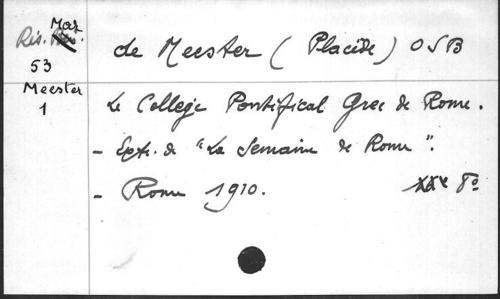 Mag
Ris.
53
Meester
1
de Meester (Placide) OSB
Le College Pontifical Grec de Rome.
- Extr. de "La Semaine de Rome".
- Rome 1910. XXe 8o